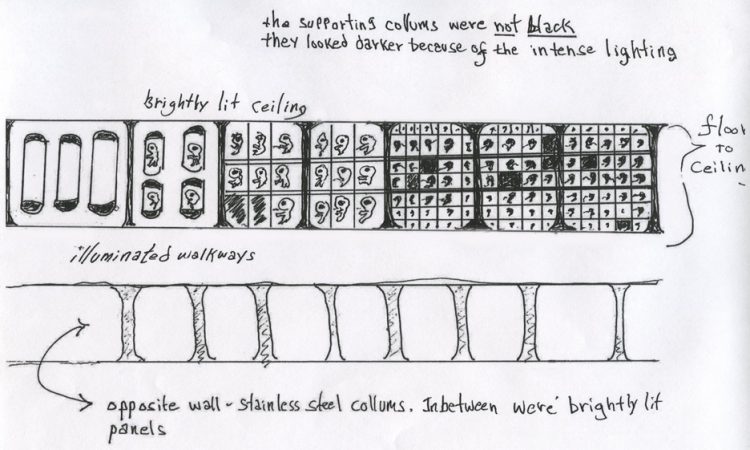 the supporting collums were not black
they looked darker because of the intense lighting
brightly lit ceiling
floor
To
Ceilin
illuminated walkways
opposite wall - stainless steel collums. Inbetween were brightly lit
panels